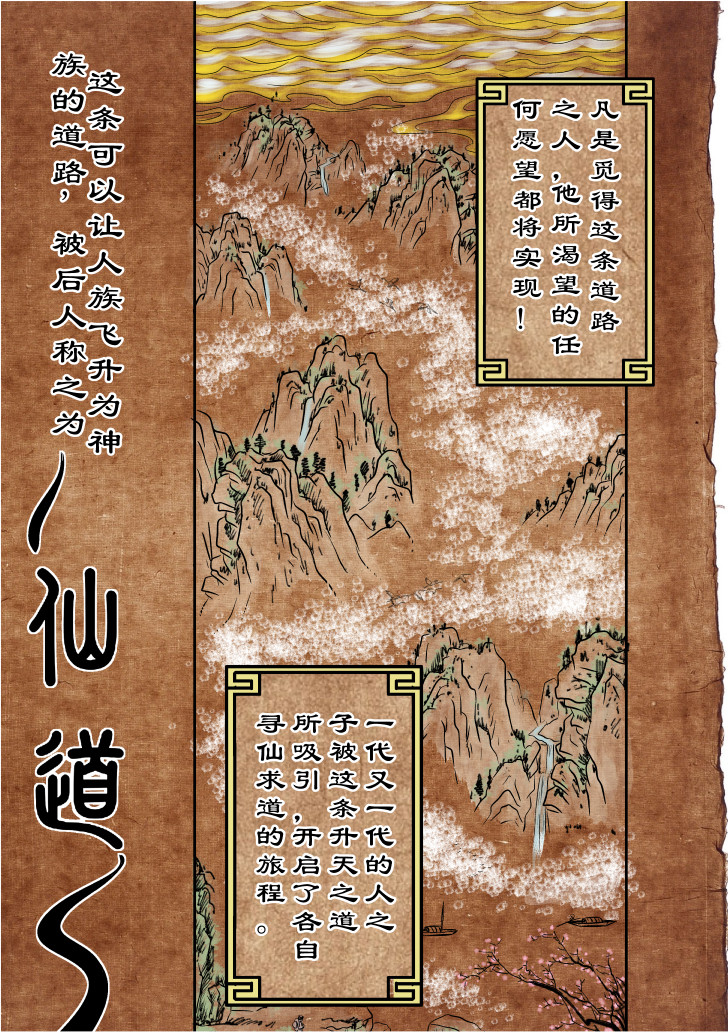 凡是觅得这条道路
之人，他所渴望的任
何愿望都将实现！
一代又一代的人之
子被这条升天之道
所吸引，开启了各自
寻仙求道的旅程。
这条可以让人族飞升为神
族的道路，被后人称之为
仙道